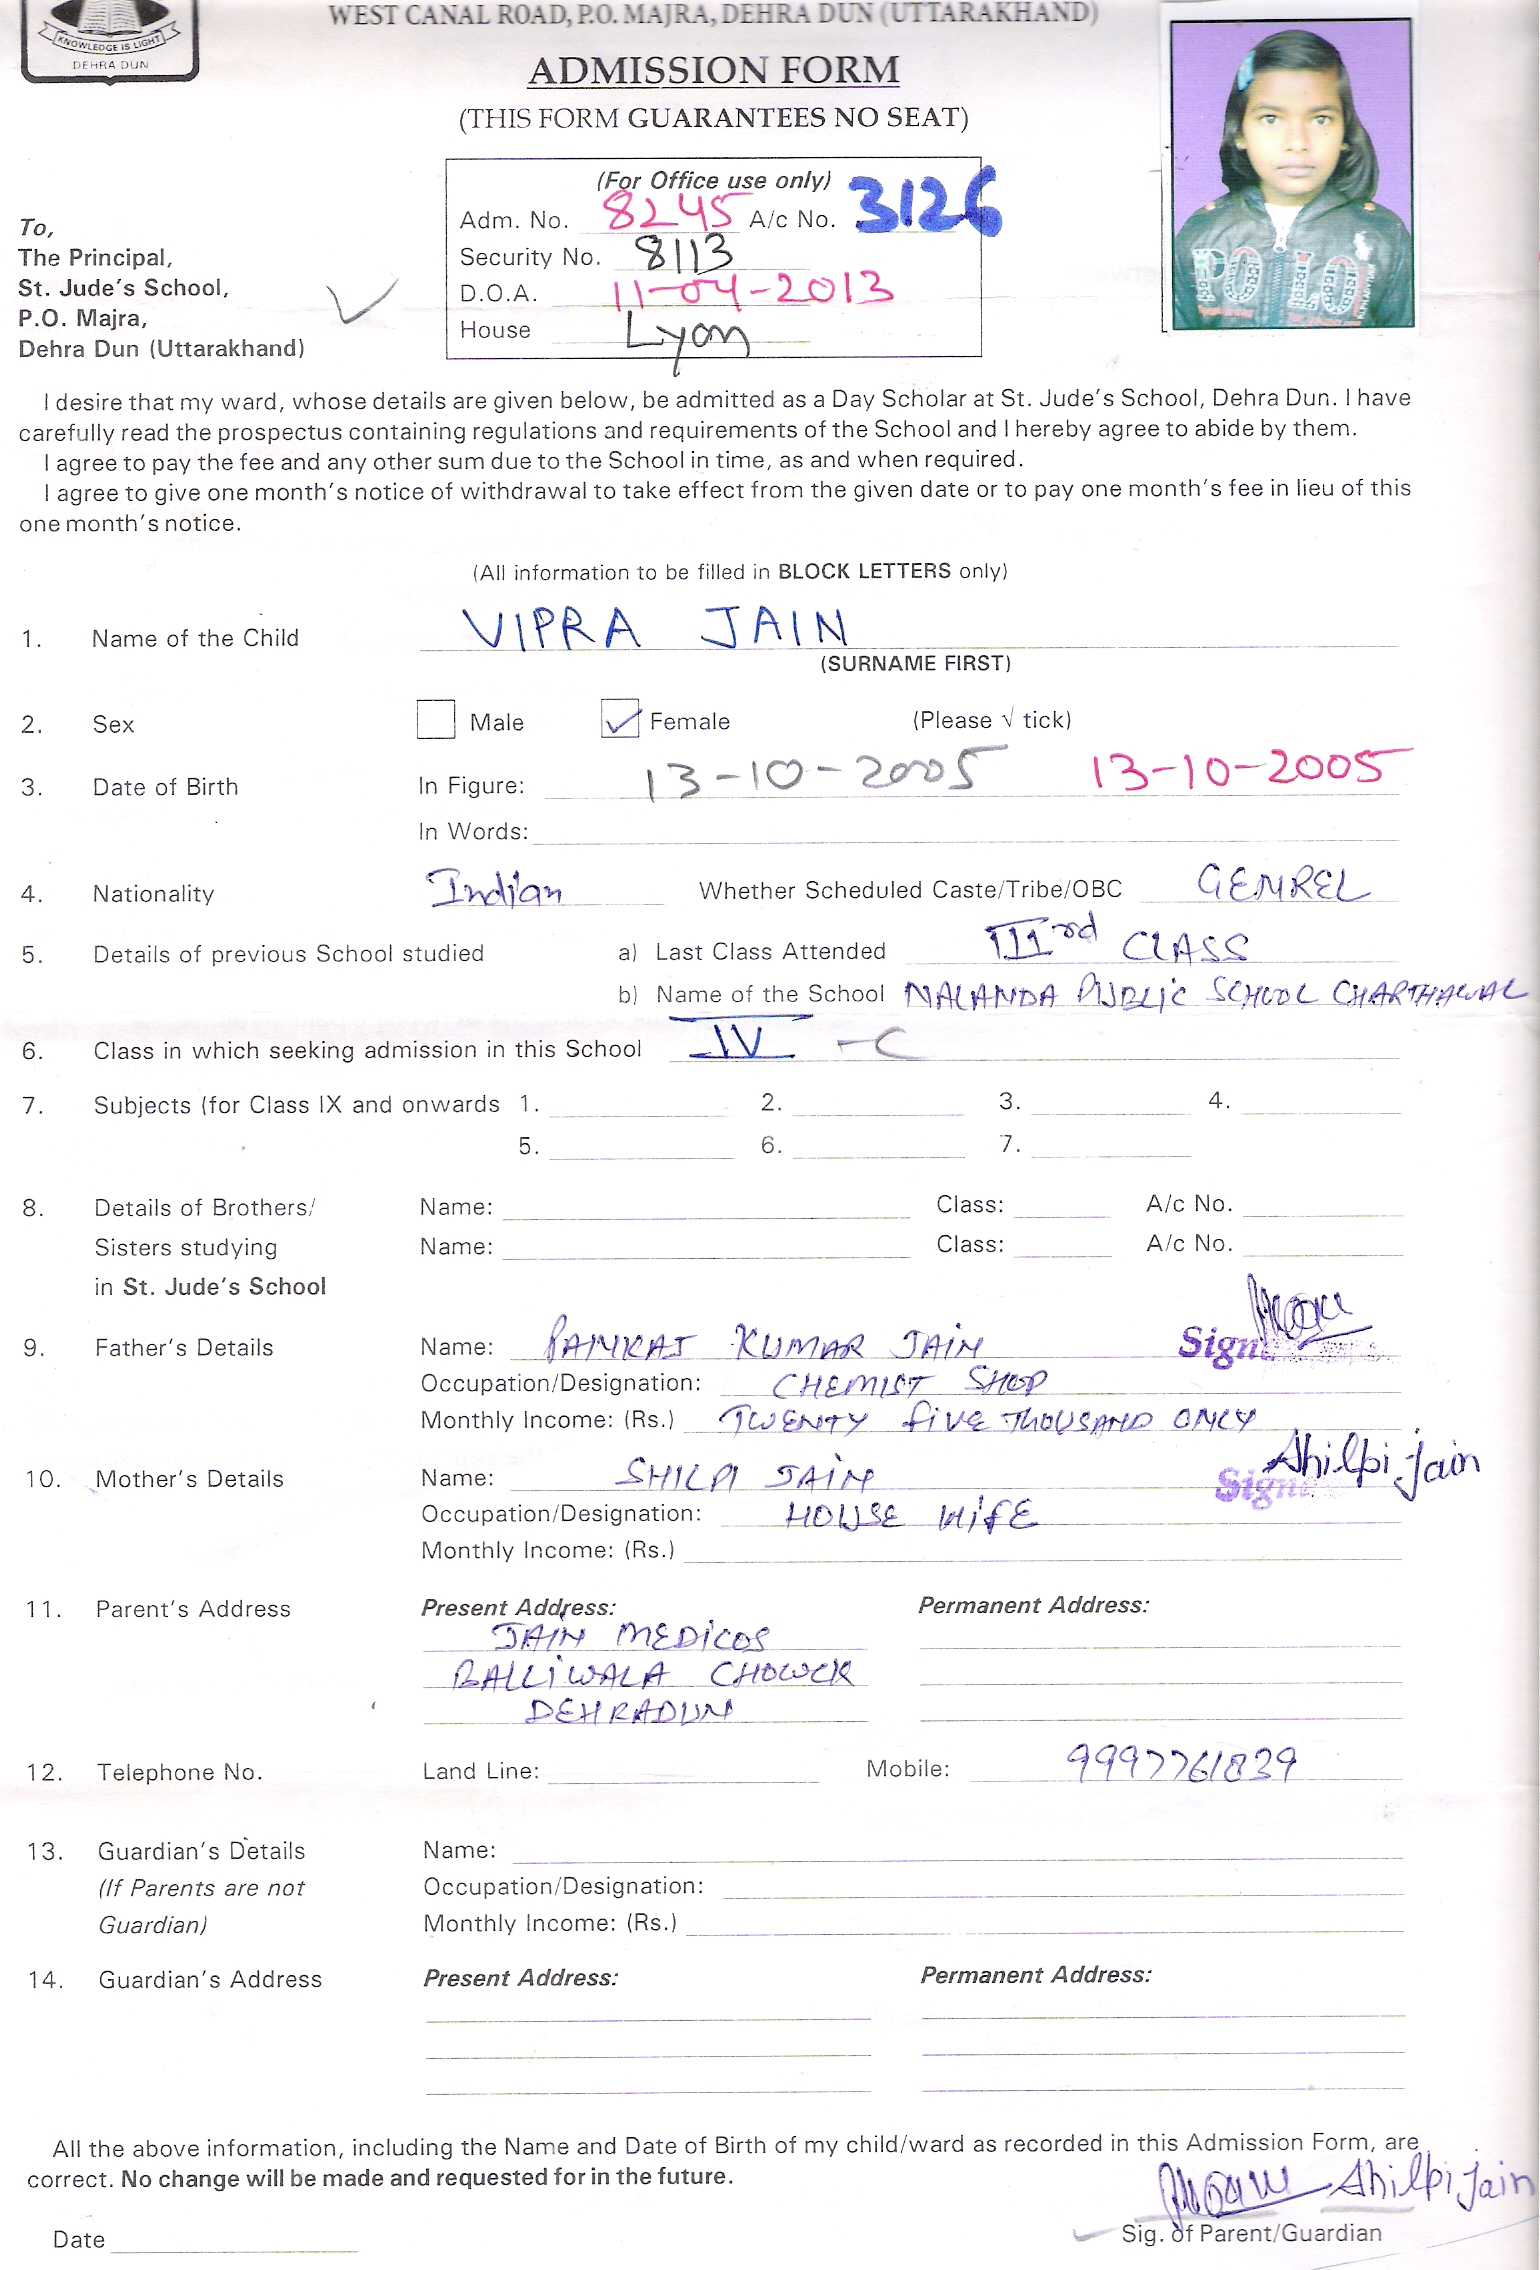 WEST CANAL ROAD, P.O. MAJRA, DEHRA DUN (UTTARAKHAND)
KNOWLEDGE IS LIGHT
DEHRA DUN
ADMISSION FORM
(THIS FORM GUARANTEES NO SEAT)
(For Office use only)
Adm. No. 8245 A/c No. 3126
Security No. 8113
D.O.A. 11-04-2013
House Lyon
To,
The Principal,
St. Jude's School,
P.O. Majra,
Dehra Dun (Uttarakhand)
POLO
I desire that my ward, whose details are given below, be admitted as a Day Scholar at St. Jude's School, Dehra Dun. I have
carefully read the prospectus containing regulations and requirements of the School and I hereby agree to abide by them.
I agree to pay the fee and any other sum due to the School in time, as and when required.
I agree to give one month's notice of withdrawal to take effect from the given date or to pay one month's fee in lieu of this
one month's notice.
(All information to be filled in BLOCK LETTERS only)
1. Name of the Child VIPRA JAIN
(SURNAME FIRST)
2. Sex Male Female (Please √ tick)
3. Date of Birth In Figure: 13-10-2005 13-10-2005
In Words:
4. Nationality Indian Whether Scheduled Caste/Tribe/OBC GENREL
5. Details of previous School studied a) Last Class Attended IIIrd CLASS
b) Name of the School NALANDA PUBLIC SCHOOL CHARTHAWAL
6. Class in which seeking admission in this School IV - C
7. Subjects (for Class IX and onwards 1. 2. 3. 4.
5. 6. 7.
8. Details of Brothers/ Name: Class: A/c No.
Sisters studying Name: Class: A/c No.
in St. Jude's School
9. Father's Details Name: PANKAJ KUMAR JAIN Sign.
Occupation/Designation: CHEMIST SHOP
Monthly Income: (Rs.) TWENTY FIVE THOUSAND ONLY
10. Mother's Details Name: SHILPI JAIN Sign. Shilpi Jain
Occupation/Designation: HOUSE WIFE
Monthly Income: (Rs.)
11. Parent's Address Present Address: Permanent Address:
JAIN MEDICOS
BALLIWALA CHOWCK
DEHRADUN
12. Telephone No. Land Line: Mobile: 9997761839
13. Guardian's Details Name:
(If Parents are not Occupation/Designation:
Guardian) Monthly Income: (Rs.)
14. Guardian's Address Present Address: Permanent Address:
All the above information, including the Name and Date of Birth of my child/ward as recorded in this Admission Form, are
correct. No change will be made and requested for in the future.
Shilpi Jain
Date Sig. of Parent/Guardian